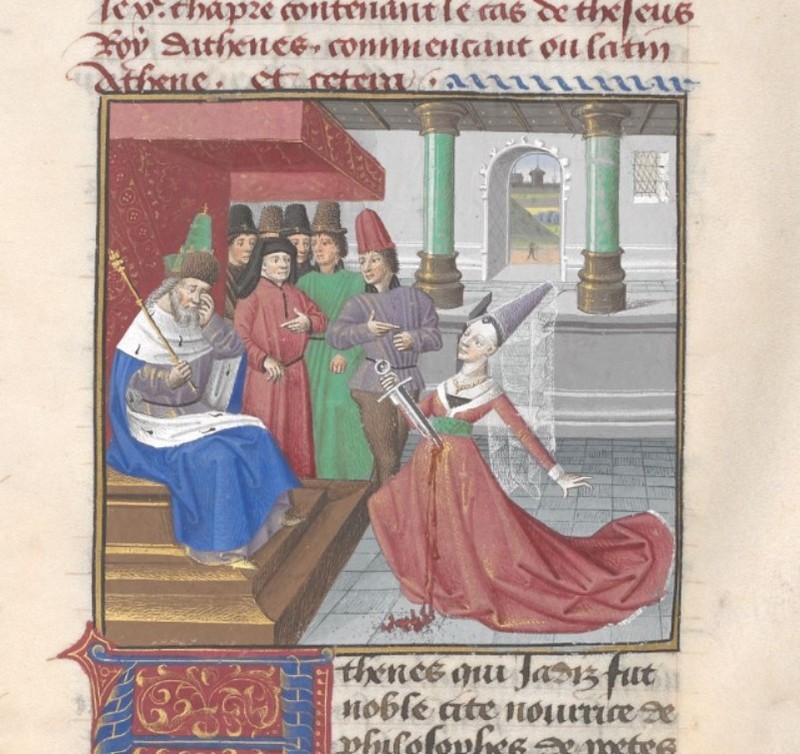 le v.e chapre contenant le cas de theseus
Roy dathenes, commencant ou latin
Athene. Et cetera.
thenes qui Jadiz fut
noble cite nourrice de
philosophes de poetes